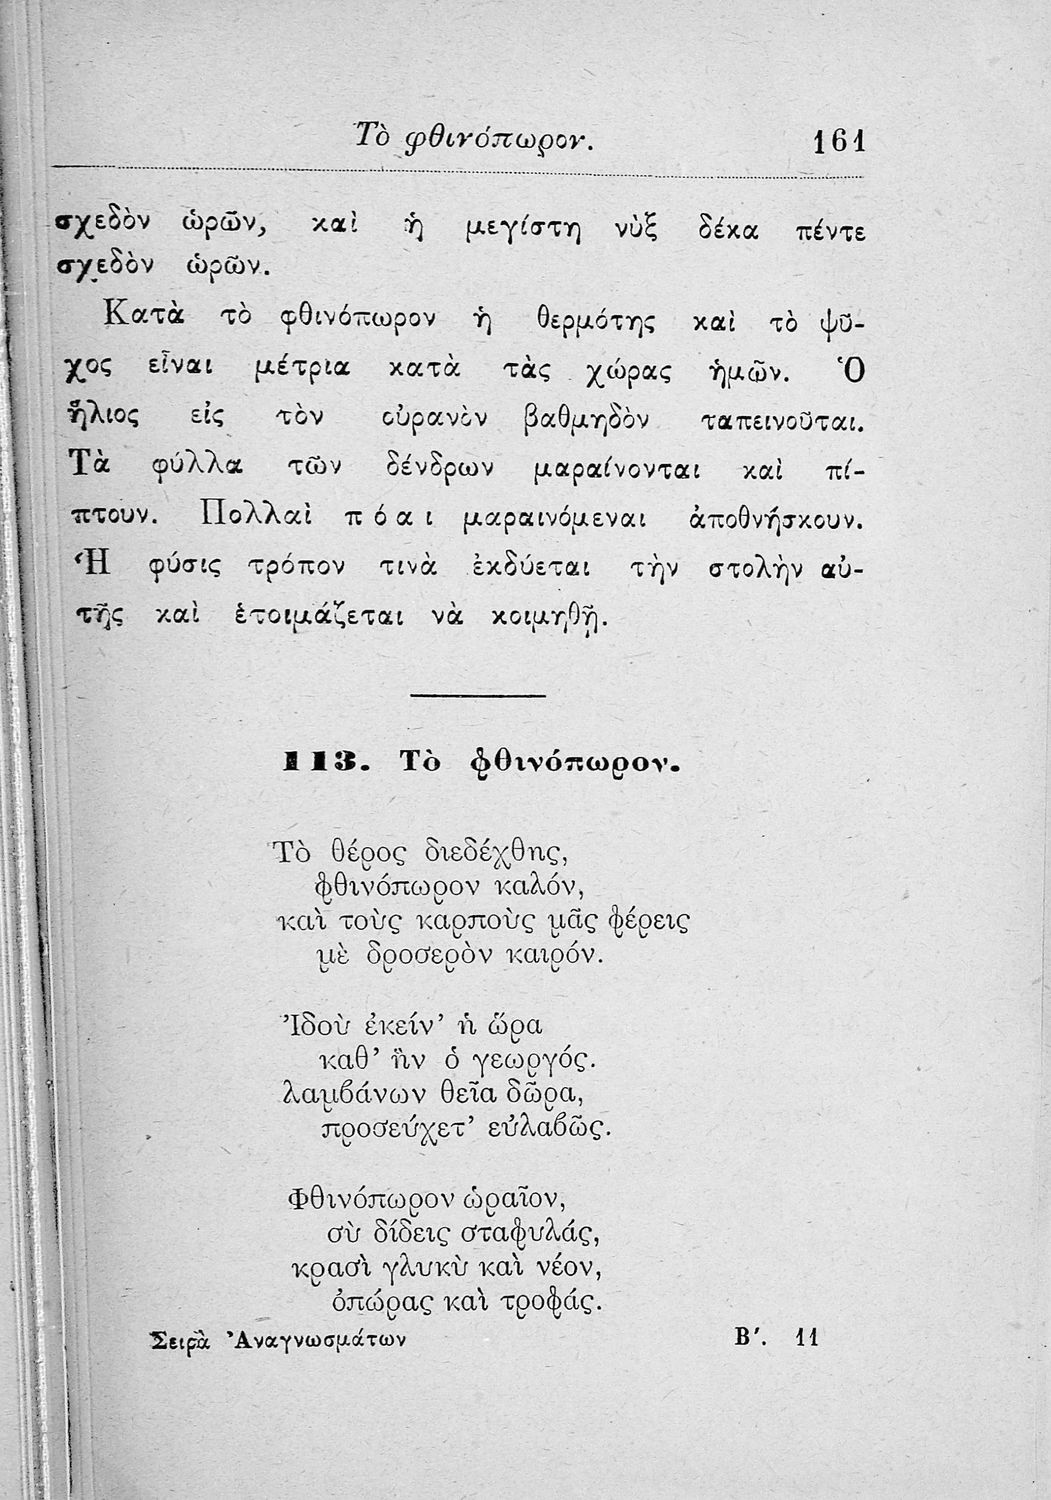 Τὸ φθινόπωρον. 161
σχεδὸν ὡρῶν, καὶ ἡ μεγίστη νὺξ δέκα πέντε
σχεδὸν ὡρῶν.
Κατὰ τὸ φθινόπωρον ἡ θερμότης καὶ τὸ ψῦ-
χος εἶναι μέτρια κατὰ τὰς χώρας ἡμῶν. Ὁ
ἥλιος εἰς τὸν οὐρανὸν βαθμηδὸν ταπεινοῦται.
Τὰ φύλλα τῶν δένδρων μαραίνονται καὶ πί-
πτουν. Πολλαὶ πόαι μαραινόμεναι ἀποθνήσκουν.
Ἡ φύσις τρόπον τινὰ ἐκδύεται τὴν στολὴν αὑ-
τῆς καὶ ἑτοιμάζεται νὰ κοιμηθῇ.
113. Τὸ φθινόπωρον.
Τὸ θέρος διεδέχθης,
φθινόπωρον καλόν,
καὶ τοὺς καρποὺς μᾶς φέρεις
μὲ δροσερὸν καιρόν.
Ἰδοὺ ἐκείν’ ἡ ὥρα
καθ’ ἣν ὁ γεωργός.
λαμβάνων θεῖα δῶρα,
προσεύχετ’ εὐλαβῶς.
Φθινόπωρον ὡραῖον,
σὺ δίδεις σταφυλάς,
κρασὶ γλυκὺ καὶ νέον,
ὀπώρας καὶ τροφάς.
Σειρὰ Ἀναγνωσμάτων Β′. 11